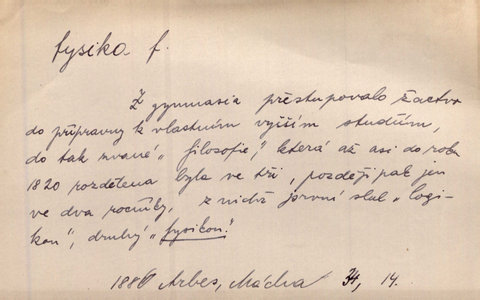 fysika f.
Z gymnasia přestupovalo žactvo
do přípravny k vlastním vyšším studiím,
do tak zvané „filosofie," která až asi do roku
1820 rozdělena byla ve tři, později pak jen
ve dva ročníky, z nichž první slul „logi-
kou", druhý „fysikou".
1886 Arbes, Mácha 34, 14.